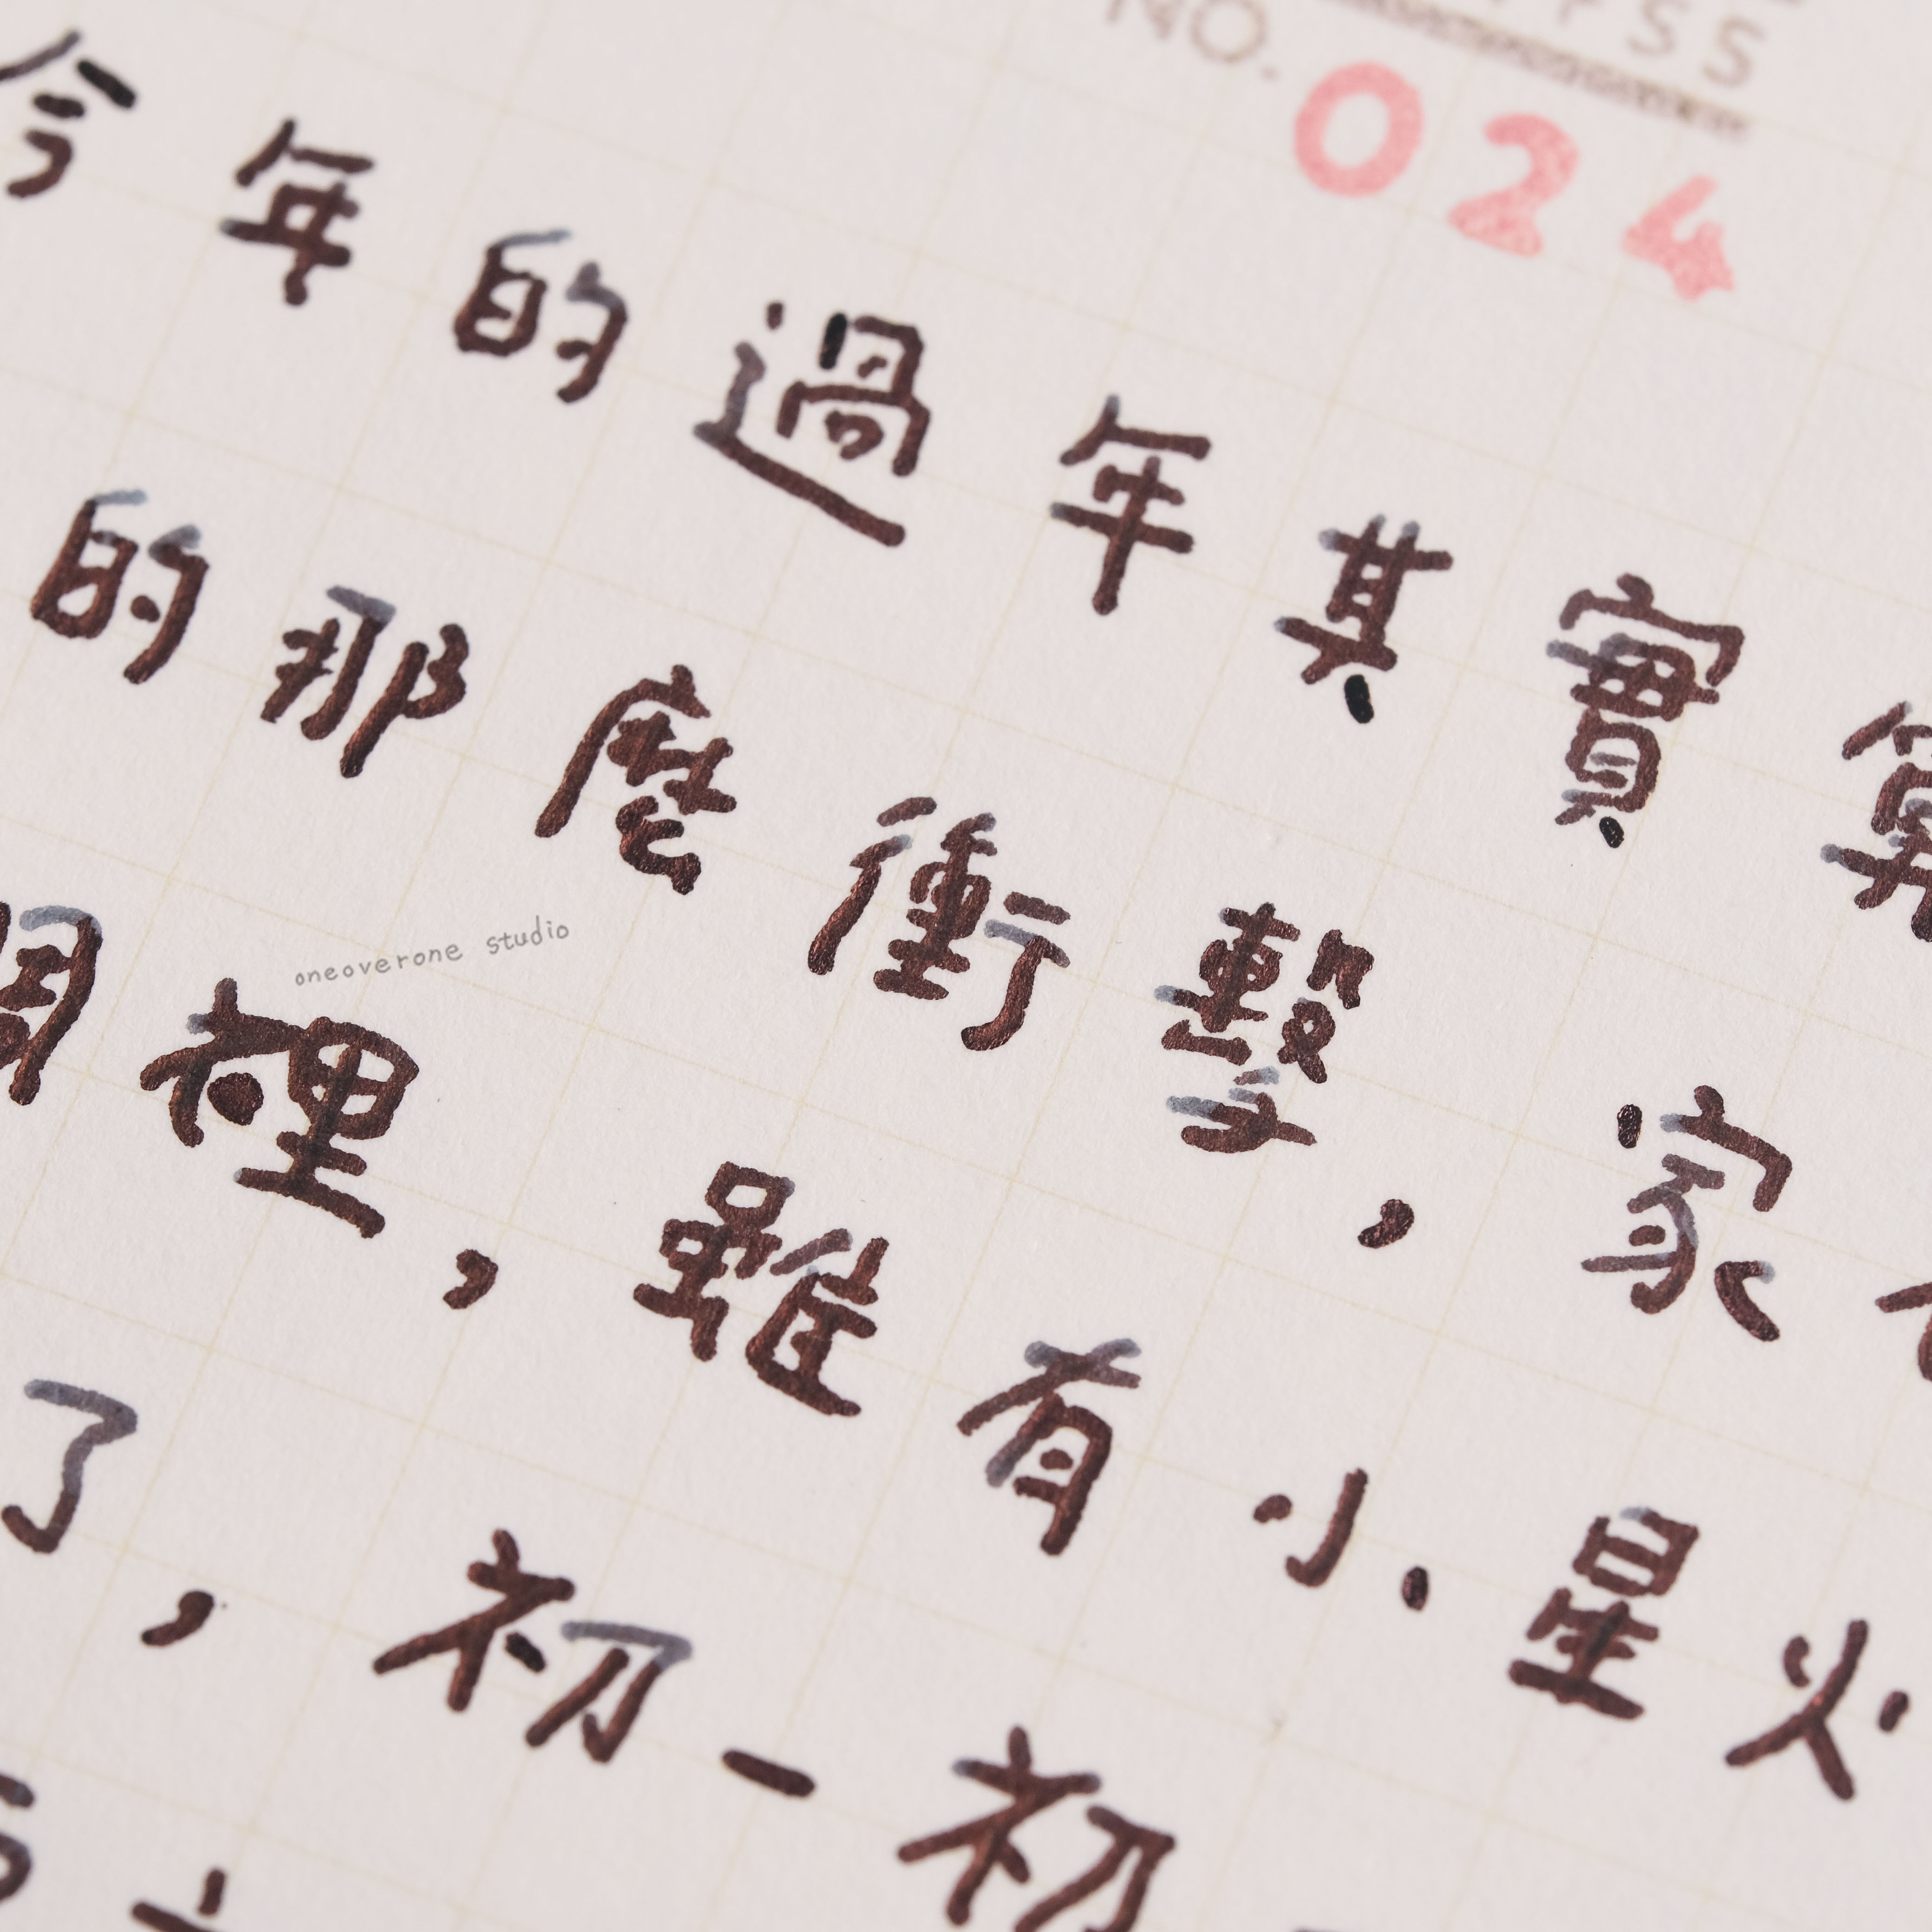 NO. 024
今年的過年其實算
的那麼衝擊，家
裡，雖有小星火
了，初一初
oneoverone studio